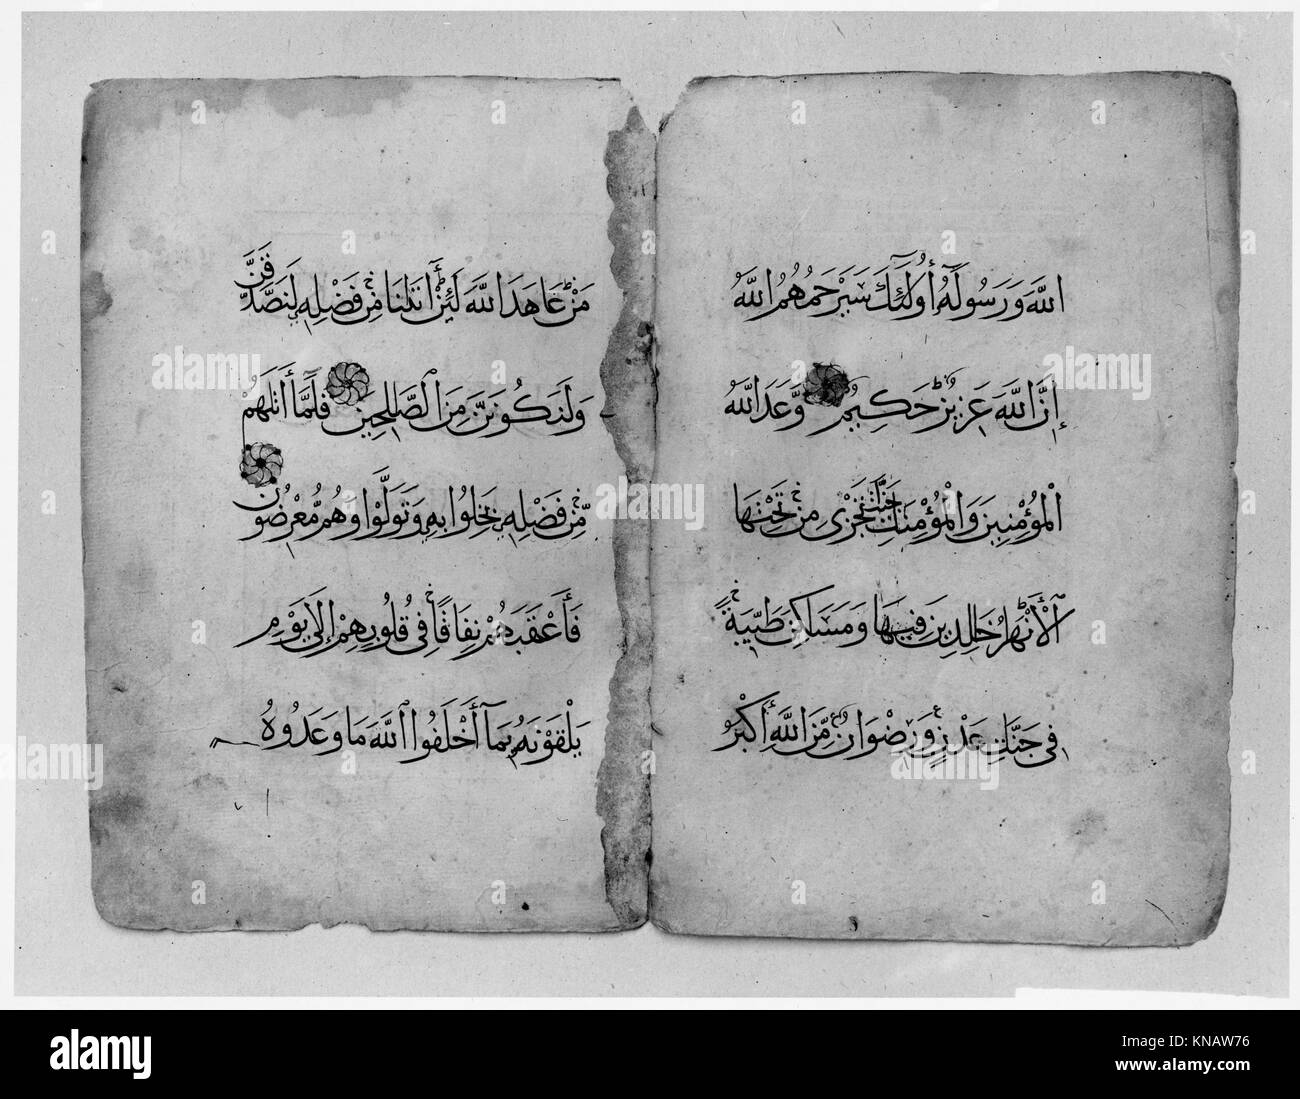 اللَّهَ وَرَسُولَهُ أُولَٰئِكَ سَيَرْحَمُهُمُ اللَّهُ
إِنَّ اللَّهَ عَزِيزٌ حَكِيمٌ وَعَدَ اللَّهُ
الْمُؤْمِنِينَ وَالْمُؤْمِنَاتِ جَنَّاتٍ تَجْرِي مِن تَحْتِهَا
الْأَنْهَارُ خَالِدِينَ فِيهَا وَمَسَاكِنَ طَيِّبَةً
فِي جَنَّاتِ عَدْنٍ وَرِضْوَانٌ مِّنَ اللَّهِ أَكْبَرُ
مَّنْ عَاهَدَ اللَّهَ لَئِنْ آتَانَا مِن فَضْلِهِ لَنَصَّدَّقَنَّ
وَلَنَكُونَنَّ مِنَ الصَّالِحِينَ فَلَمَّا أَتَاهُمْ
مِّن فَضْلِهِ بَخِلُوا بِهِ وَتَوَلَّوْا وَهُم مُّعْرِضُونَ
فَأَعْقَبَهُمْ نِفَاقًا فِي قُلُوبِهِمْ إِلَىٰ يَوْمِ
يَلْقَوْنَهُ بِمَا أَخْلَفُوا اللَّهَ مَا وَعَدُوهُ
alamy stock photo
KNAW76
www.alamy.com